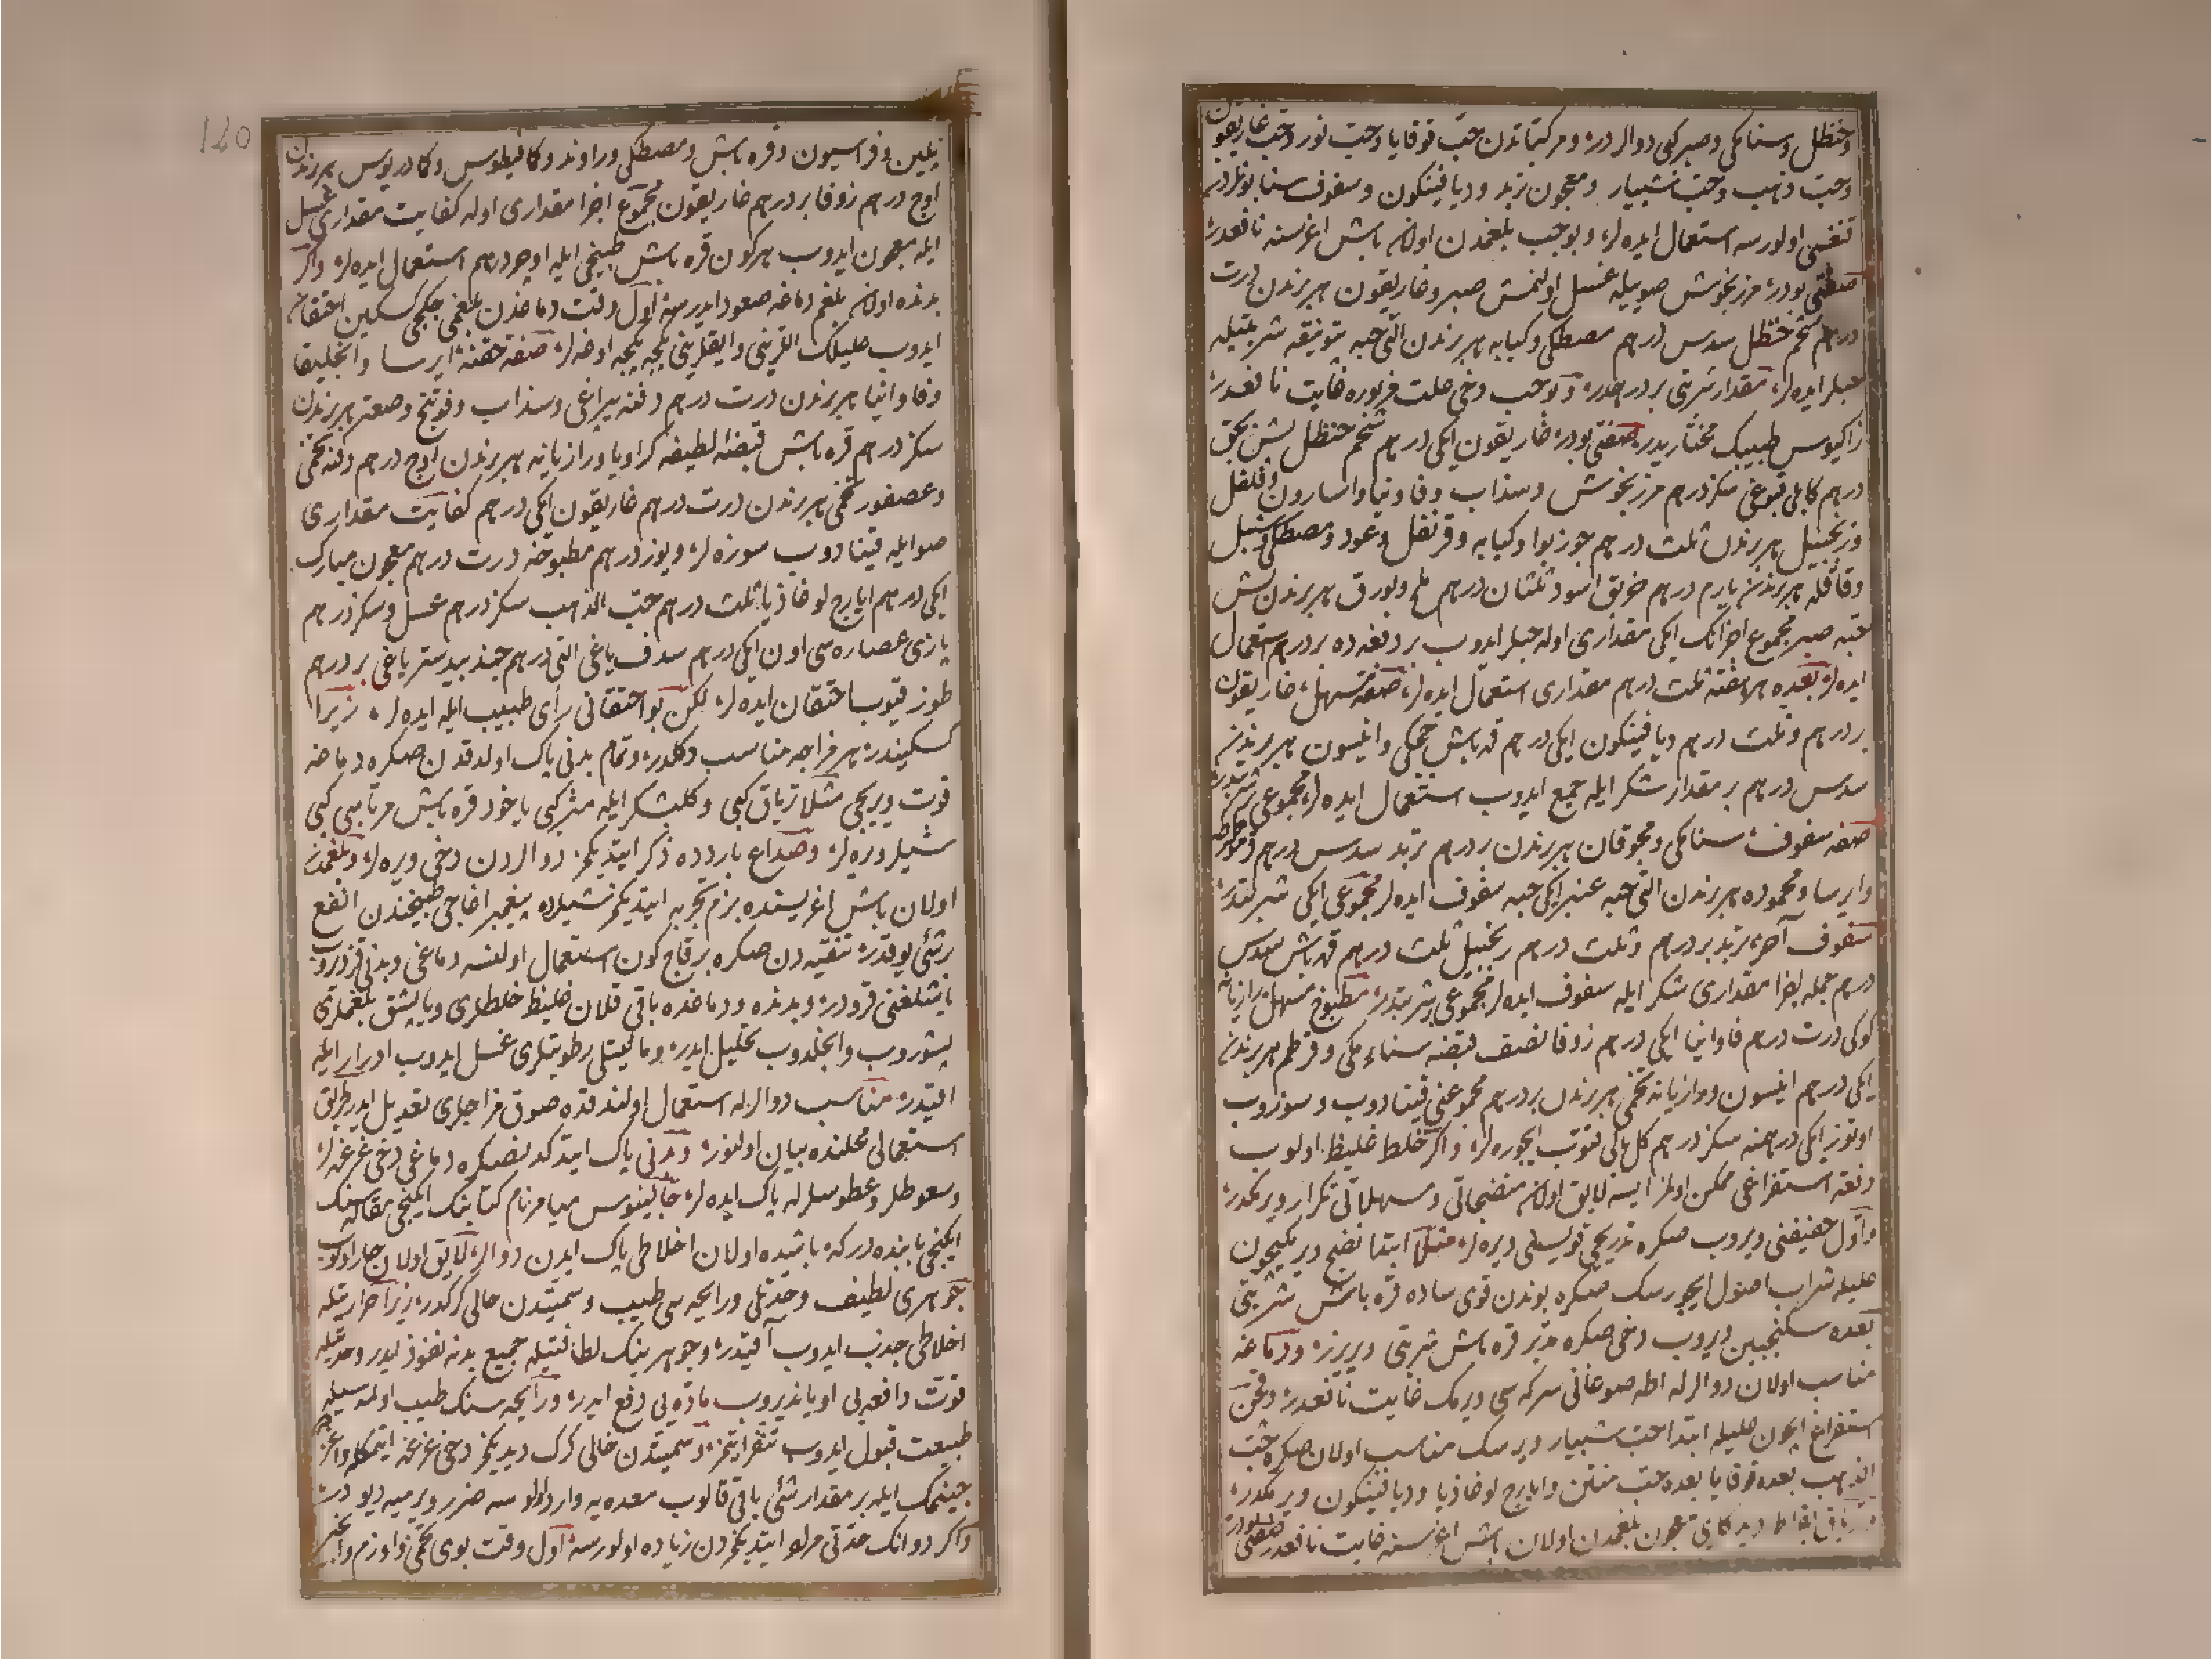 وحنظل وسنامکی وصبر کبی دوالردر ومرکباتدن حب قوقایا وحب نور وحب غاریقون
وحب ذهب وحب شبیار ومعجون تربد ودیافینکون وسفوف سنا بونلردن
قنغسی اولورسه استعمال ایده لر وبو حب بلغمدن اولان باش اغرسنه نافعدر
صفتی بودر مرزنجوش صویيله غسل اولنمش صبر وغاریقون هر برندن درت
درهم شحم حنظل سدس درهم مصطکی وکبابه هر برندن التی حبه شربتیله
حبلر ایده لر مقدار شربتی بر درهمدر وبو حب دخی علت مزبوره غایت نافعدر
طبیبک مختاریدر صفتی بودر غاریقون ایکی درهم شحم حنظل بش بچق
درهم کابلی قبوغی سکز درهم مرزنجوش وسذاب وفاوانیا واسارون وفلفل
وزنجبیل هر برندن ثلث درهم جوز بوا وکبابه وقرنفل وعود ومصطکی وسنبل
وقاقله هر برندن یارم درهم خربق اسود ثلثان درهم ملح وبورق هر برندن بش
حبه صبر مجموع اجزانک ایکی مقداری اوله حبلر ایدوب بر دفعه ده بر درهم استعمال
ایده لر بعده هر هفته ثلث درهم مقداری استعمال ایده لر صفت مسهل غاریقون
بر درهم وثلث درهم دیافینکون ایکی درهم قره باش وانیسون هر برندن
سدس درهم بر مقدار شکر ایله جمع ایدوب استعمال ایده لر مجموعی بر شربتدر
صفت سفوف سنامکی هر برندن بر درهم تربد سدس درهم
وایرسا ومحموده هر برندن التی حبه عنبر ایکی حبه سفوف ایده لر مجموعی ایکی شربتدر
سفوف آخر تربد بر درهم وثلث درهم زنجبیل ثلث درهم قره باش سدس
درهم جمله اجزا مقداری شکر ایله سفوف ایده لر مجموعی بر شربتدر مطبوخ مسهل رازیانه
کوکی درت درهم فاوانیا ایکی درهم زوفا نصف قبضه سناء مکی وقرطم هر برندن
ایکی درهم انیسون ورازیانه تخمی هر برندن بر درهم مجموعنی قینادوب وسوزوب
اوتوز ایکی درهمنه سکز درهم کل بالی قتوب ایچوره لر واکر خلط غلیظ اولوب
دفعة استفراغی ممکن اولمز ایسه لایق اولان منضجاتی ومسهلاتی تکرار ویرمکدر
واول خفیفنی ویروب صکره تدریجی قویسنی ویره لر مثلا ابتدا نضج ویرمک ایچون
علیله شراب اصول ایچورسک صکره بوندن قوی ساده قره باش شربتی
بعده سکنجبین ویروب دخی صکره مدبر قره باش شربتی ویریرز ودماغه
مناسب اولان دوالرله اطه صوغانی سرکه سی ویرمک غایت نافعدر
استفراغ ایچون علیله ابتدا حب شبیار ویرسک مناسب اولان صکره حب
الذهب بعده قوقایا بعده حب منتن وایارج لوغاذیا ودیافینکون ویرمکدر
معجون بلغمدن اولان باش اغرسنه غایت نافعدر
وفراسیون وقره باش ومصطکی وراوند وکمافیطوس وکمادریوس هر برندن
اوچ درهم زوفا بر درهم غاریقون مجموع اجزا مقداری اوله کفایت مقداری عسل
ایله معجون ایدوب هر کون قره باش طبیخی ایله اوچر درهم استعمال ایده لر واکر
بدنده اولان بلغم دماغه صعود ایدرسه اول وقت دماغدن بلغمی چکیجی احتقان
ایدوب علیلک اللرینی وایقلرینی محکم اوغه لر صفت حقنه ایرسا وانجلیقا
وفاوانیا هر برندن درت درهم دفنه یپراغی وسذاب وفوتنج وصعتر هر برندن
سکز درهم قره باش قبضه لطیفه کراویا ورازیانه هر برندن اوچ درهم دفنه تخمی
وعصفور تخمی هر برندن درت درهم غاریقون ایکی درهم کفایت مقداری
صو ایله قینادوب سوزه لر ویوز درهم مطبوخنه درت درهم معجون مبارک
ایکی درهم ایارج لوغاذیا ثلث درهم حب الذهب سکز درهم عسل وسکز درهم
پازی عصاره سی اون ایکی درهم سدف یاغی التی درهم جندبیدستر یاغی بر درهم
طوز قیوب احتقان ایده لر لکن بو احتقانی رأی طبیب ایله ایده لر زیرا
هر مزاجه مناسب دکلدر وتمام بدنی پاک اولدقدن صکره دماغه
قوت ویریجی مثلا تریاق کبی وکلشکر ایله مثر کبی یاخود قره باش مرباسی کبی
شیلر ویره لر وصداع بارده ده ذکر ایتدیکمز دوالردن دخی ویره لر وبلغمدن
اولان باش اغریسنده بزم تجربه ایتدیکمز شیلرده پیغمبر اغاجی طبیخندن انفع
بر شی یوقدر تنقیه دن صکره بر قاچ کون استعمال اولنسه دماغی وبدنی قزدروب
یاشلغنی قرودر وبدنده ودماغده باقی قلان غلیظ خلطلری ویاپشق بلغملری
پشوروب وانجلدوب تحلیل ایدر ومائیتلی رطوبتلری غسل ایدوب ادرار ایله
اقیدر مناسب دوالرله استعمال اولندقده صوق مزاجلری تعدیل ایدر طریق
استعمالی محلنده بیان اولنور وبدنی پاک ایتدکدنصکره دماغی دخی غرغره لر
وسعوطلر وعطوسلرله پاک ایده لر جالینوس میامر نام کتابنک ایکنجی مقاله سنک
ایکنجی بابنده درکه باشده اولان اخلاطی پاک ایدن دوالره لایق اولان حار اولوب
جوهری لطیف وحدتلی ورایحه سی طیب وسمیتدن خالی کرکدر زیرا حرارتیله
اخلاطی جذب ایدوب آقیدر وجوهرینک لطافتیله جمیع بدنه نفوذ ایدر وحدتیله
قوت دافعه یی اویاندیروب ماده یی دفع ایدر ورایحه سنک طیب اولمه سیله
طبیعت قبول ایدوب تنفر ایتمز وسمیتدن خالی کرک دیدیکمز دخی غرغره ایتمکله واغزده
چینمک ایله بر مقدار شی باقی قالوب معده یه وارد اولورسه ضرر ویرمیه دیو در
واکر دوانک حدتی مراد ایتدیکمزدن زیاده اولورسه اول وقت بوی تخمی واوزم وانجیر
140